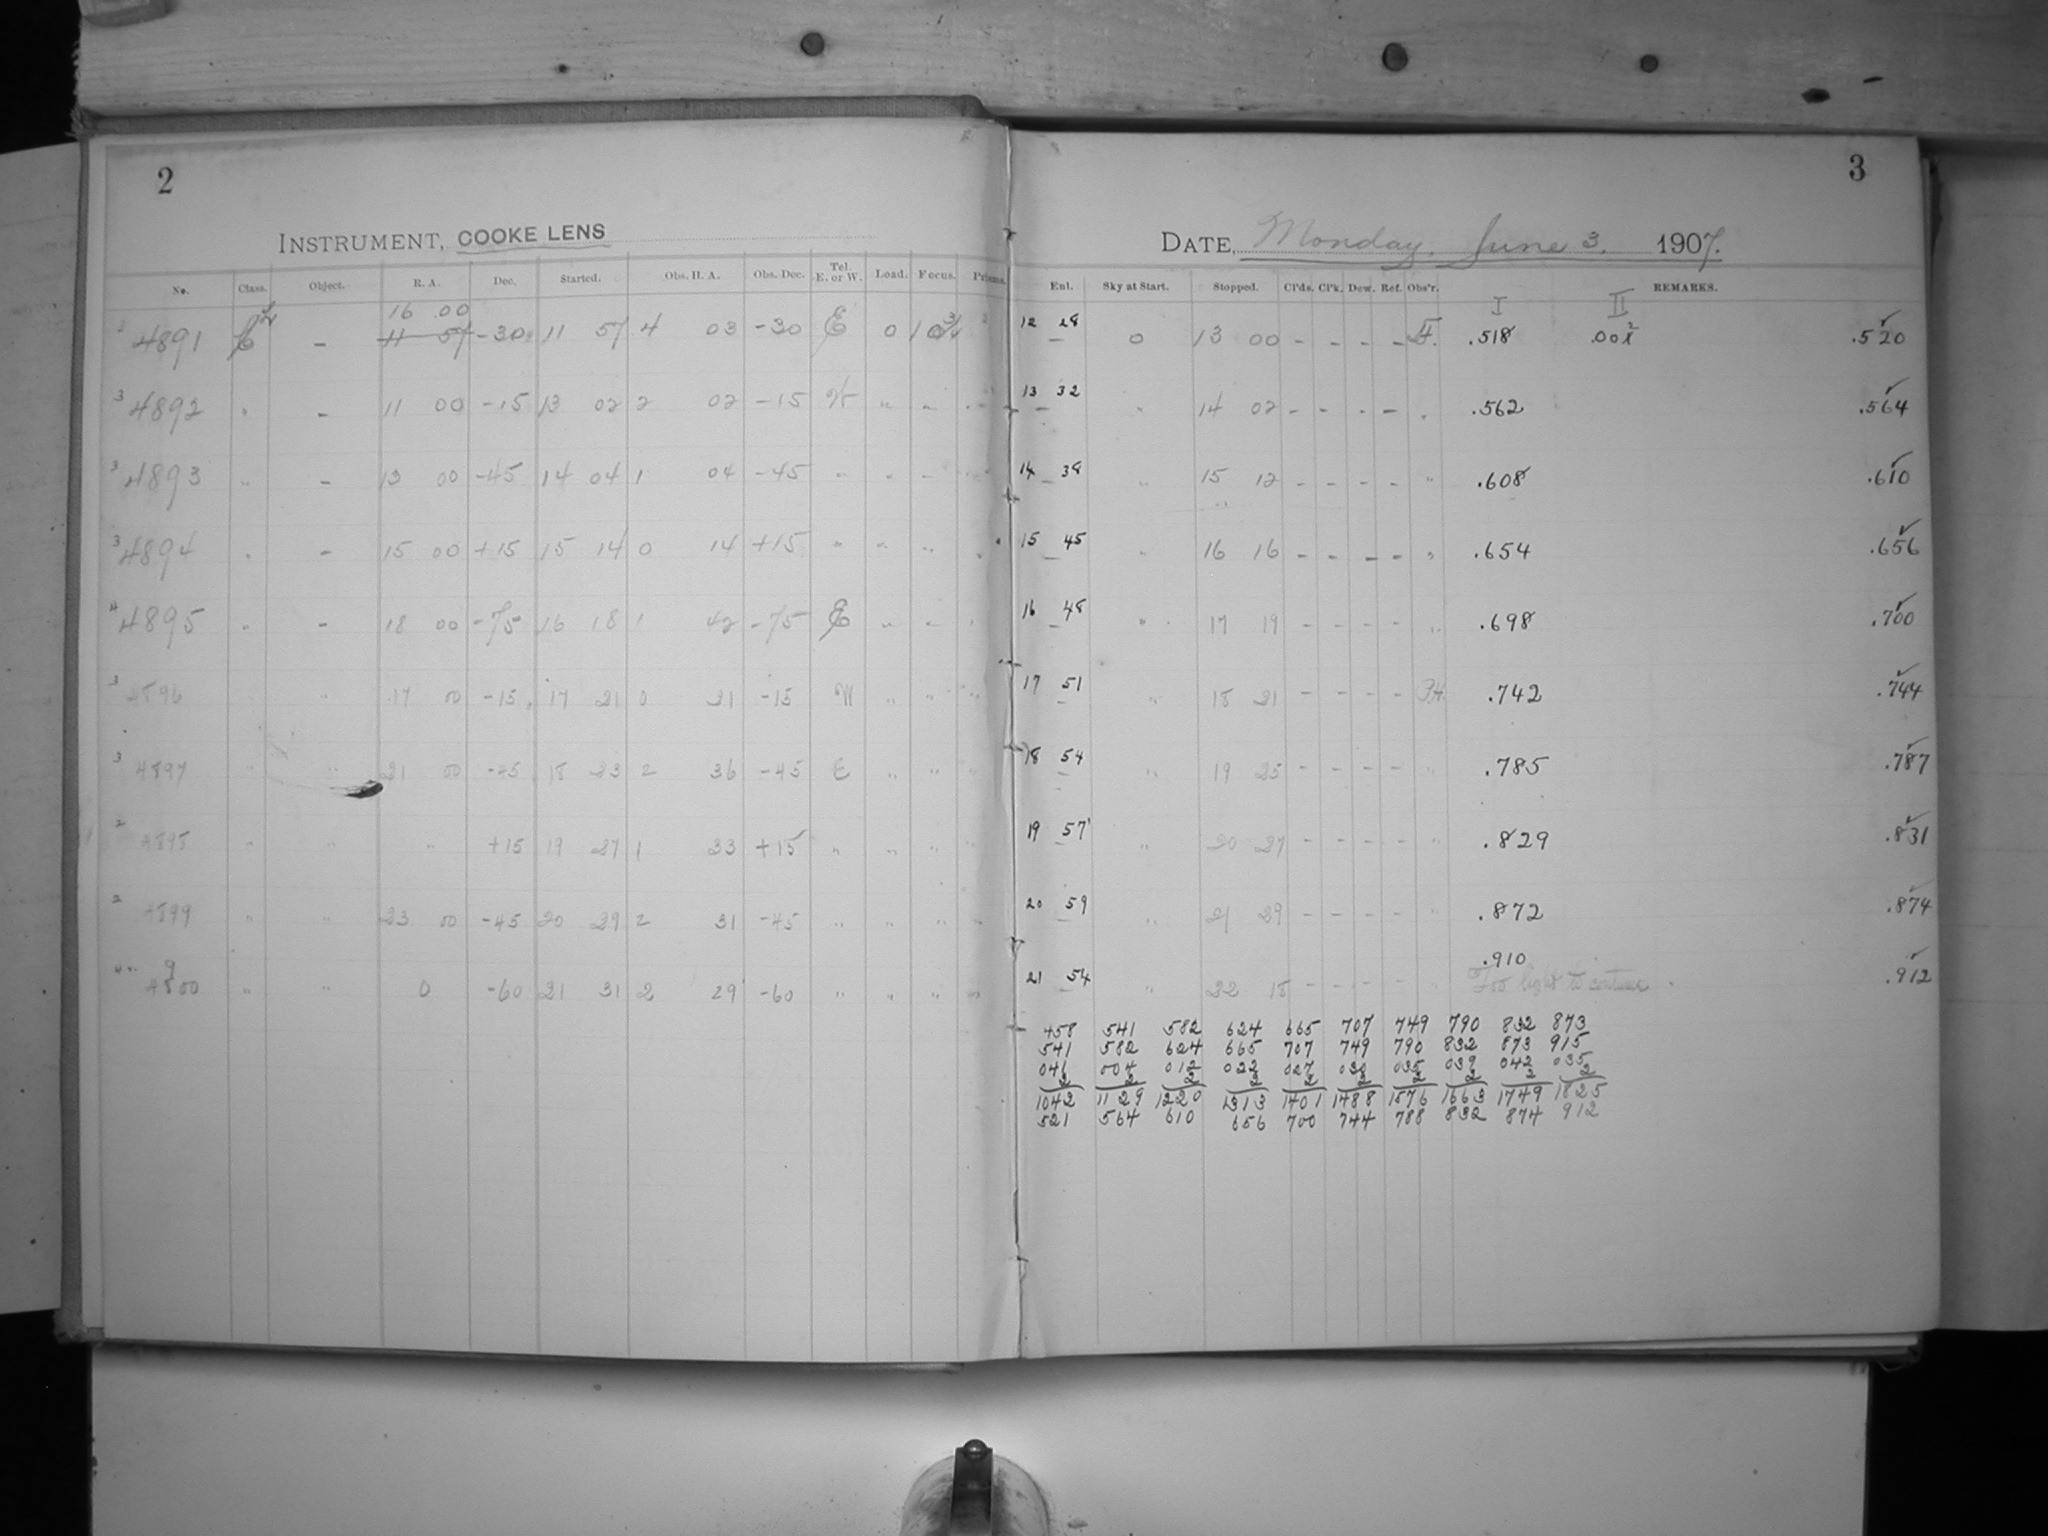 2
INSTRUMENT, COOKE LENS
No. Class. Object. R. A. Dec. Started. Obs. H. A. Obs. Dec. Tel. E. or W. Load. Focus.
16 00
4891 L - 11 57 -30 11 57 4 03 -30 E 0 10 3/4
3 4892 " - 11 00 -15 13 02 2 02 -15 W " "
3 4893 " - 13 00 -45 14 04 1 04 -45 " " "
3 4894 " - 15 00 +15 15 14 0 14 +15 " " "
4895 " - 18 00 -75 16 18 1 42 -75 E " "
3 4896 " 17 00 -15 17 21 0 21 -15 W " "
3 4897 " " 21 00 -45 18 23 2 36 -45 E " "
2 4898 " " " +15 19 27 1 33 +15 " " "
2 4899 " " 23 00 -45 20 29 2 31 -45 " " "
9
4800 " " 0 -60 21 31 2 29 -60 " " "
3
DATE, Monday, June 3, 1907.
Ent. Sky at Start. Stopped. Cl'ds. Cl'k. Dew. Ref. Obs'r. I II REMARKS.
12 28 0 13 00 - - - - .518 .002 .520
13 32 " 14 02 - - - - " .562 .564
14 38 " 15 12 - - - - " .608 .610
15 45 " 16 16 - - - - " .654 .656
16 48 " 17 19 - - - - " .698 .700
17 51 " 18 21 - - - - .742 .744
18 54 " 19 25 - - - - " .785 .787
19 57 " 20 27 - - - - " .829 .831
20 59 " 21 29 - - - - " .872 .874
.910
21 54 " 22 18 - - - - " Too light to continue. .912
458 541 582 624 665 707 749 790 832 873
541 582 624 665 707 749 790 832 873 915
041 004 012 022 027 030 035 039 042 035
2 2 2 2 2 2 2 2 2 2
1042 1129 1220 1313 1401 1488 1576 1663 1749 1825
521 564 610 656 700 744 788 832 874 912